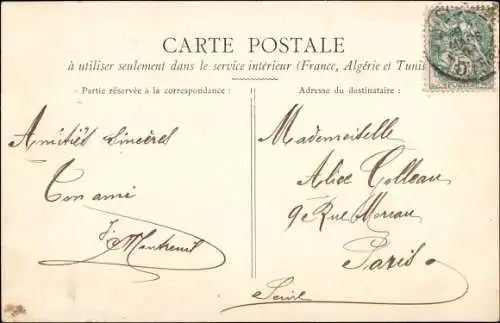 CARTE POSTALE
à utiliser seulement dans le service intérieur (France, Algérie et Tunis
Partie réservée à la correspondance :
Adresse du destinataire :
Amitiés Sincères
Ton ami
J. Montreuil
Mademoiselle
Alice Colleau
9 Rue Moreau
Paris